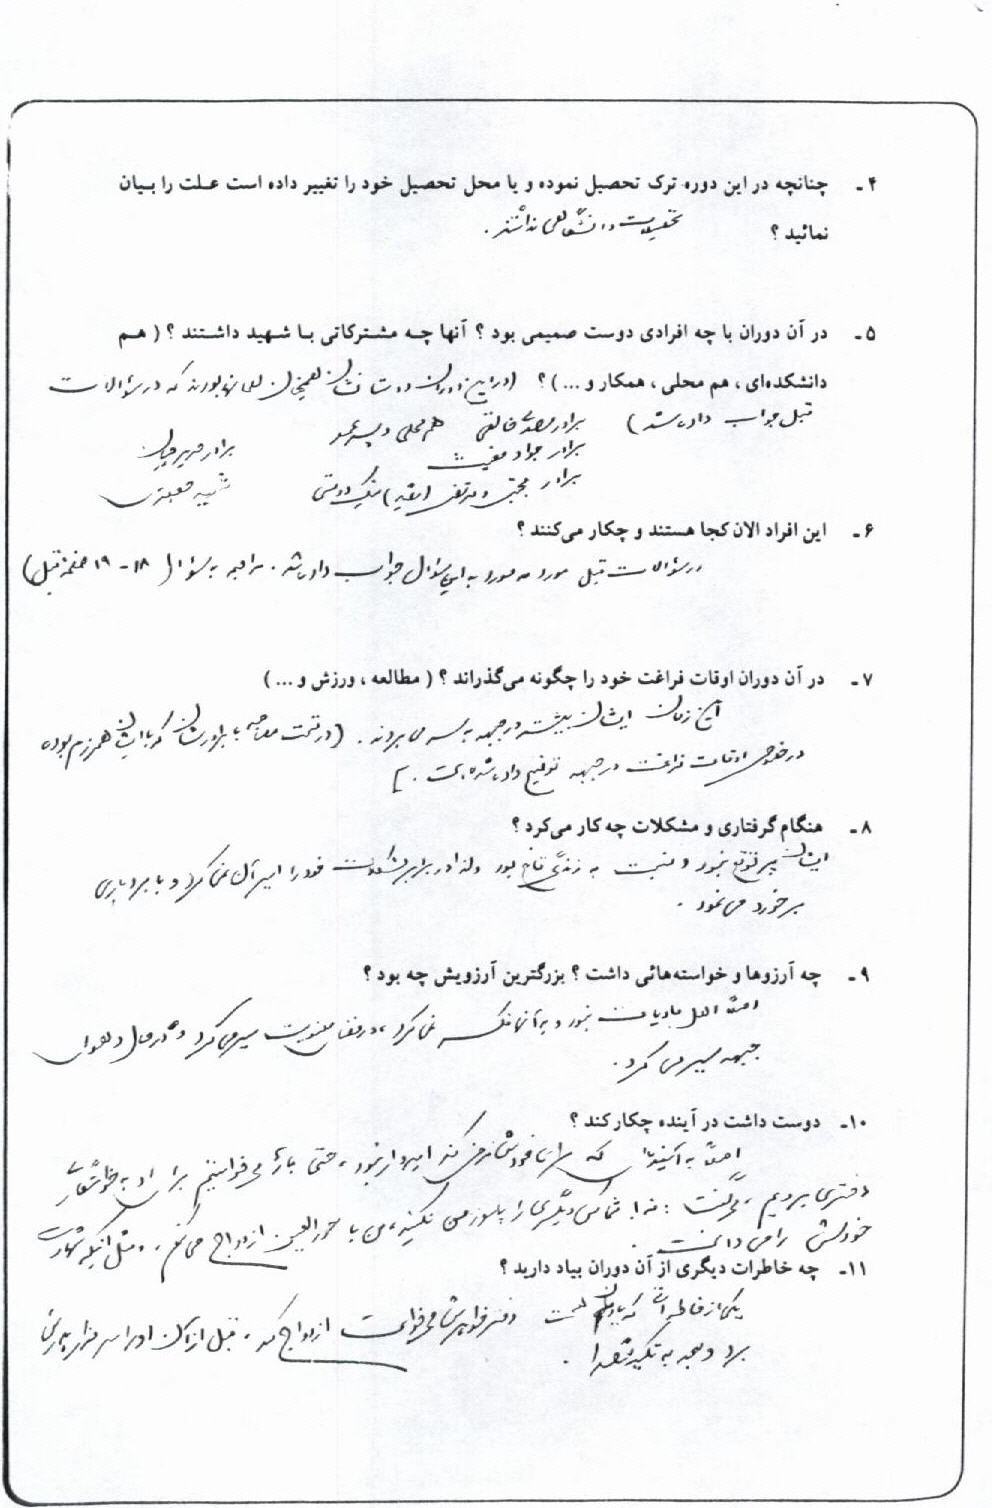 ۴ـ چنانچه در این دوره ترک تحصیل نموده و یا محل تحصیل خود را تغییر داده است علت را بیان
نمائید ؟ تحصیلات دانشگاهی نداشتند .
۵ـ در آن دوران با چه افرادی دوست صمیمی بود ؟ آنها چه مشترکاتی با شهید داشتند ؟ ( هم
دانشکده‌ای ، هم محلی ، همکار و ... ) ؟ (در این دوران دوستانشان همچنان همانها بودند که در سؤالات
قبل جواب داده شد ) برادر خالقی هم محلی و پسر عمو
برادر جواد مغیث برادر
برادر مجتبی و مرتضی
۶ـ این افراد الان کجا هستند و چکار می‌کنند ؟
در سؤالات قبل مورد به مورد به این سؤال جواب داده شد . مراجعه به سؤال ( ۱۸ - ۱۹ صفحه قبل )
۷ـ در آن دوران اوقات فراغت خود را چگونه می‌گذراند ؟ ( مطالعه ، ورزش و ... )
این زمان ایشان بیشتر در جبهه به سر می بردند . (در قسمت مصاحبه با برادرشان که با ایشان همرزم بوده
در خصوص اوقات فراغت در جبهه توضیح داده شده است . ]
۸ـ هنگام گرفتاری و مشکلات چه کار می‌کرد ؟
ایشان پر توقع نبود و نسبت به زندگی قانع بود و لذا در برابر مشکلات خود را اسیر آن نمی کرد و با بردباری
برخورد می نمود .
۹ـ چه آرزوها و خواسته‌هائی داشت ؟ بزرگترین آرزویش چه بود ؟
اصلاً اهل مادیات نبود و به آنها فکر نمی کرد ، در معنویت سیر می کرد و در حال و هوای
جبهه سیر می کرد .
۱۰ـ دوست داشت در آینده چکار کند ؟
اصلاً به آینده‌ای که برای خودش فرض کند امیدوار نبود ، حتی بارها می خواستیم برای او به خواستگاری
دختری برویم ، می گفت : نه ! شما کس دیگری را نکنید ، من با حورالعین ازدواج می کنم . مثل اینکه شهادت
خودش را می دانست .
۱۱ـ چه خاطرات دیگری از آن دوران بیاد دارید ؟
یکی از خاطراتی که بیادمان هست دختر خواهرش می خواست ازدواج کند ، قبل از آن او را سر مزار
برد و بعد به